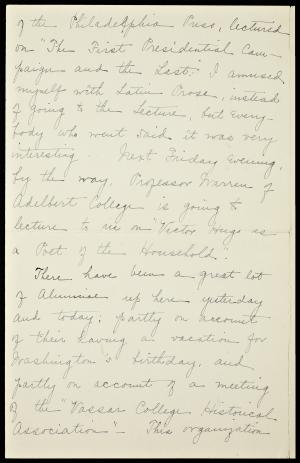 of the Philadelphia Press, lectured
on "The First Presidential Cam-
paign and the Last." I amused
myself with Latin Prose, instead
of going to the lecture, but every-
body who went said it was very
interesting. Next Friday evening,
by the way, Professor Warren of
Adelbert College is going to
lecture to us on "Victor Hugo as
a Poet of the Household."
There have been a great lot
of Alumnae up here yesterday
and today; partly on account
of their having a vacation for
Washington's birthday, and
partly on account of a meeting
of the "Vassar College Historical
Association" - This organization